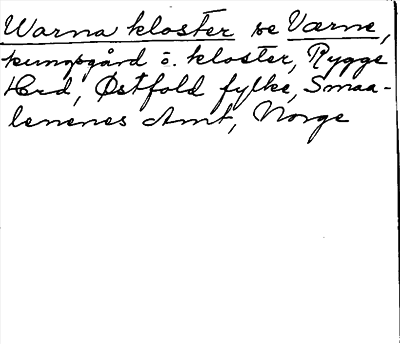 Warna kloster se Værne,
kungsgård o. kloster, Rygge
Hrd, Østfold fylke, Smaa-
lenenes Amt, Norge